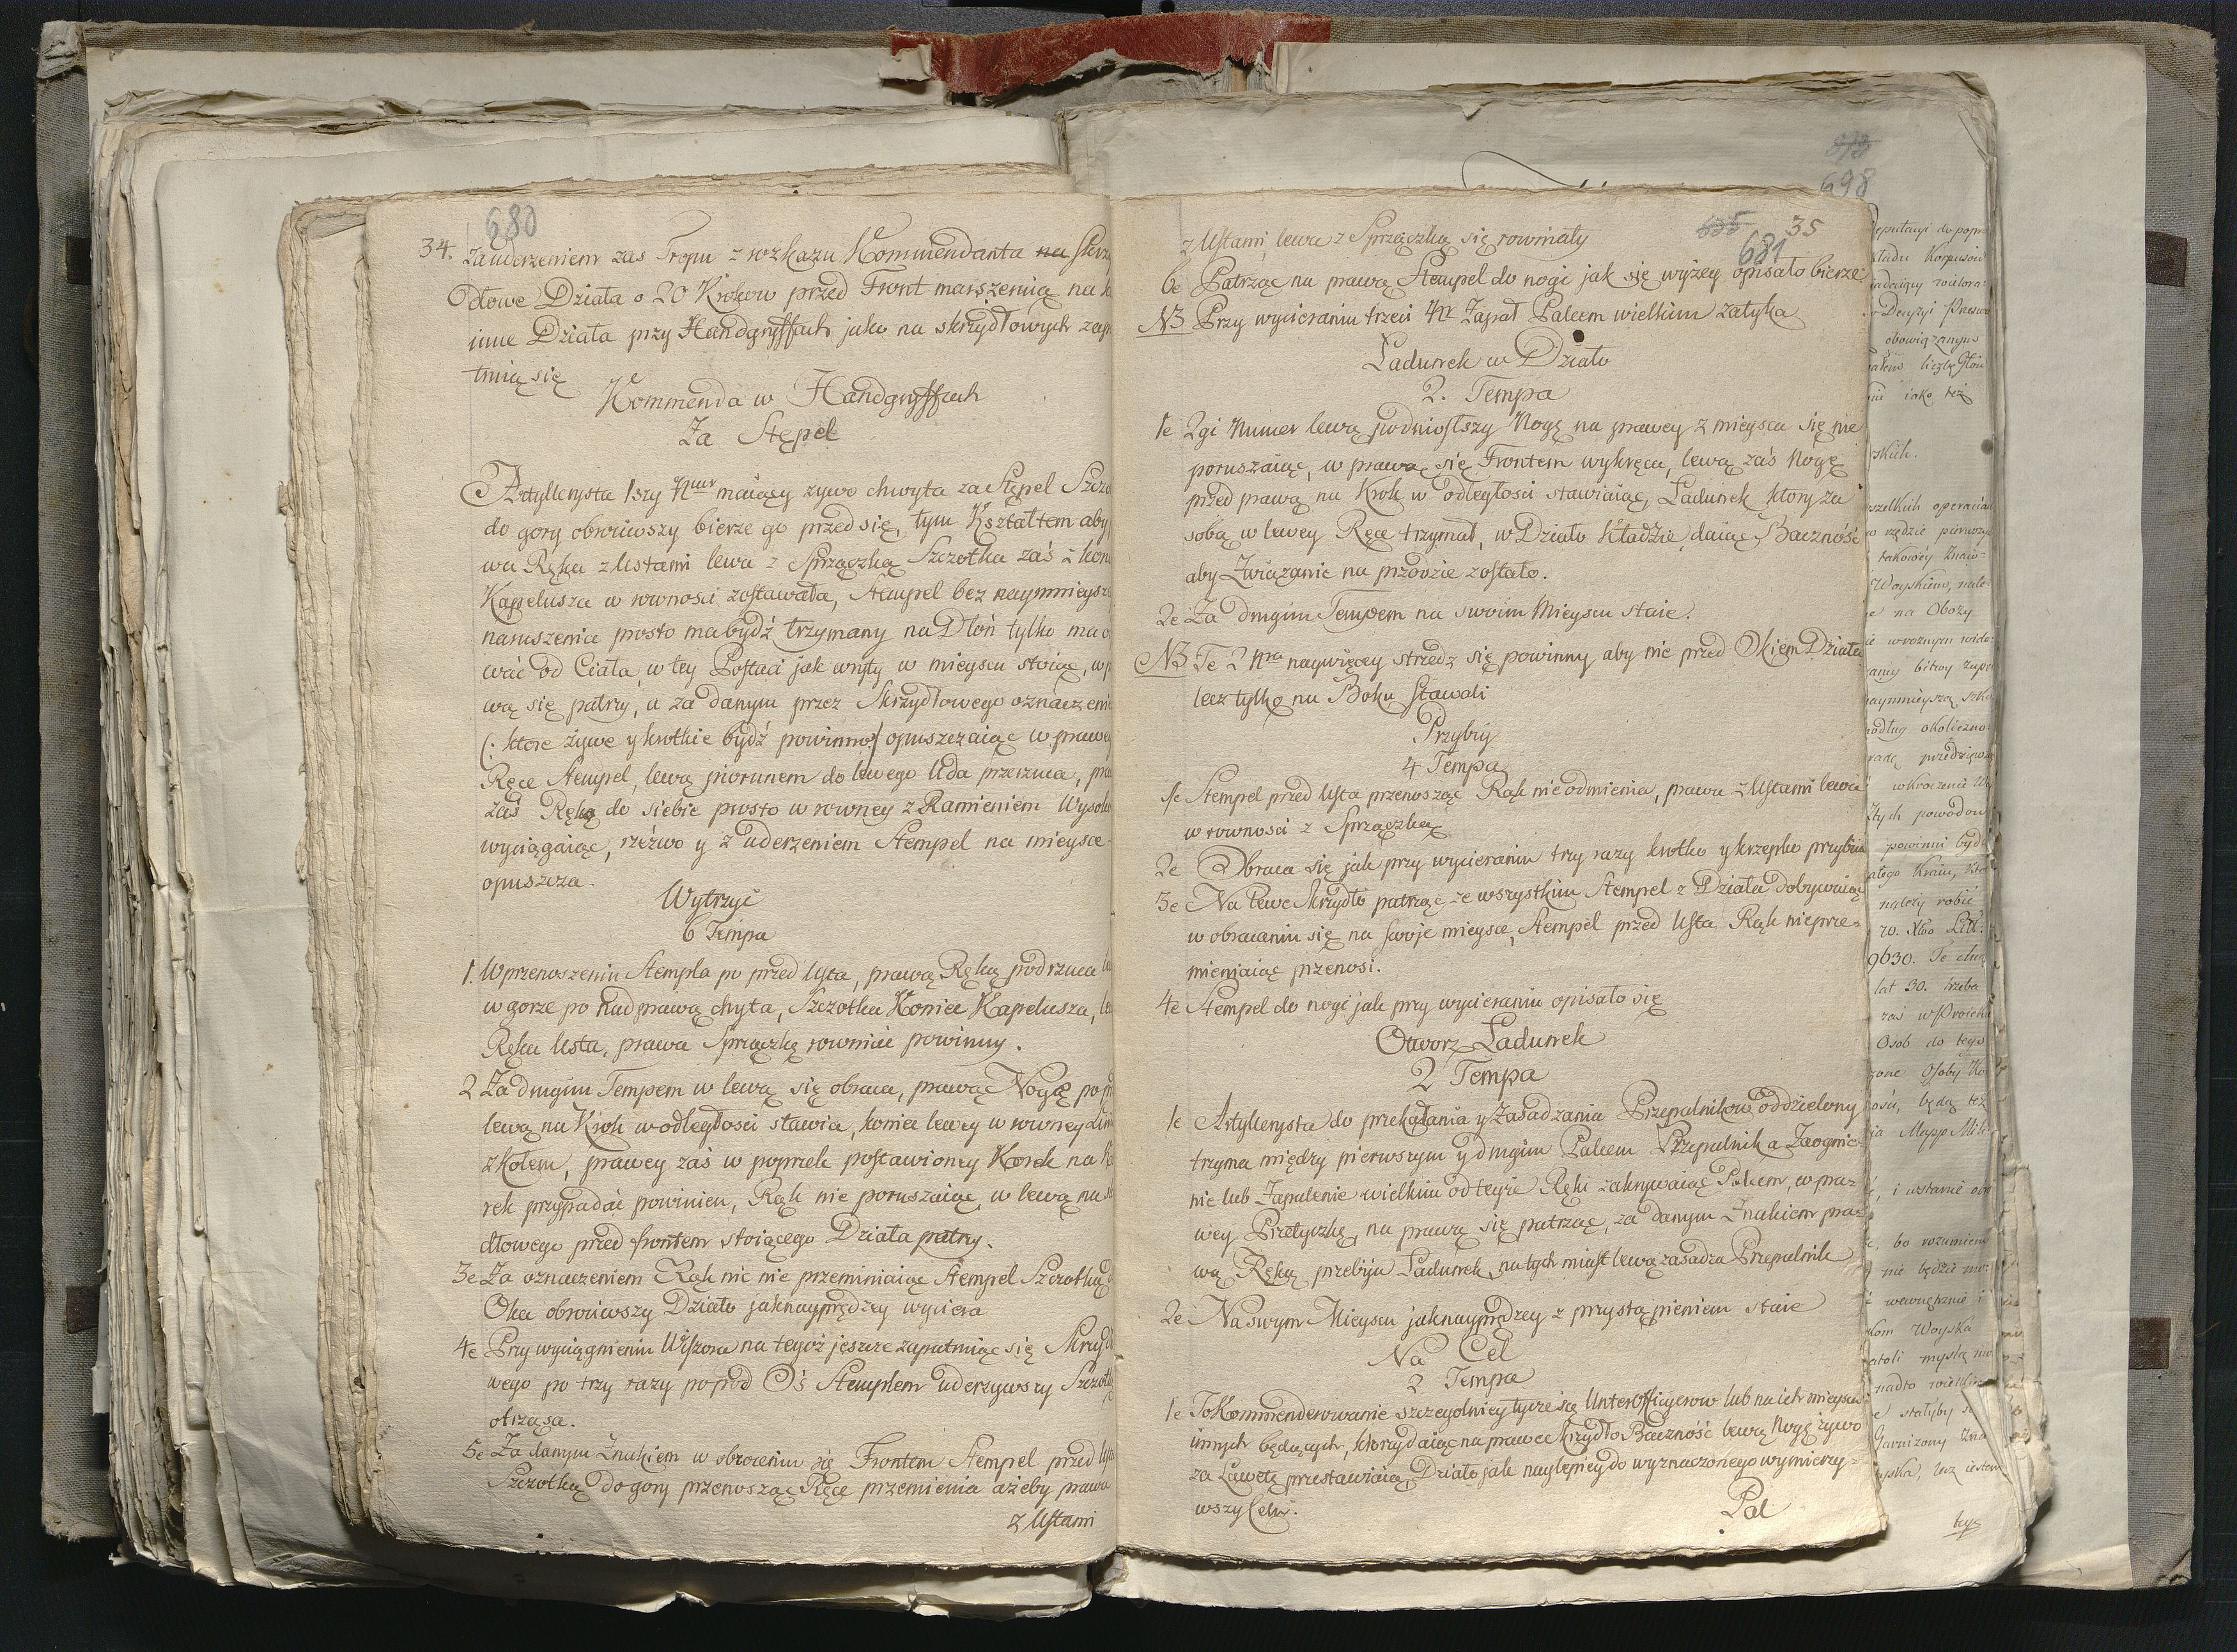 680
34. Za uderzeniem zas Tropu z rozkazu Kommendanta na Skrzy
dłowe Działa o 20 Krokow przed Front marszeruią na
inne Działa przy Handgryffach jako na skrzydłowych zap
truią się
Kommenda w Handgryffach
Za Stępel
Artyllerysta 1szy Nur maiący zywo chwyta za Stępel Szczo
do gory obrociwszy bierze go przed się, tym Kształtem aby
wa Ręka z Ustami lewa z Sprzączką Szczotka zaś z kon
Kapelusza w rownosci zostawała, Stempel bez naymnieysz
naruszenia prosto ma bydź trzymany na Dłoń tylko ma o
wać od Ciała, w tey Postaci jak wryty w mieyscu stoiąc, w p
wą się patrzy, a za danym przez Skrzydłowego oznaczeni
(: ktore żywe y krotkie bydź powinno:) opuszczaiąc w prawey
Ręce Stempel, lewą piorunem do lewego Uda przerzuca, pra
zaś Ręką do siebie prosto w rowney z Ramieniem Wysoko
wyciągaiąc, rzéźwo y z uderzeniem Stempel na mieysce
opuszcza.
Wytrzyć
6 Tempa
1. W przenoszeniu Stempla po przed Usta, prawą Ręką podrzuca le
w gorze po nad prawą chyta, Szczotka Koniec Kapelusza, le
Ręka Usta, prawa Sprzączkę rownać powinny.
2 Za drugim Tempem w lewą się obraca, prawą Nogę po p
lewą na Krok w odległości stawia, koniec lewey w rowney Lini
z Kołem, prawey zaś w poprzek postawioney Korek na Ko
rek przypadać powinien, Rąk nie poruszaiąc, w lewą na sk
dłowego przed frontem stoiącego Działa patrzy.
3e Za oznaczeniem Rąk nic nie przeminiaiąc Stempel Szczotką d
Oka obrociwszy Działo jaknayprędzey wyciera
4e Przy wyciągnieniu Wiszora na tegoż jeszcze zapatruiąc się Skrzyd
wego po trzy razy popod Oś Stemplem uderzywszy Szczotk
otrząsa.
5e Za danym Znakiem w obroceniu się Frontem Stempel przed Us
Szczotką do gory przenosząc Ręce przemienia ażeby prawa
z Ustami
573
698
535 35
681
z Ustami, lewa z Sprzączką się rownały
6e Patrząc na prawą Stempel do nogi jak się wyżey opisało bierze
NB Przy wycieraniu trzeci Nr Zapał Palcem wielkim zatyka
Ładunek w Działo
2. Tempa
1e 2gi Numer lewą podniosłszy Nogę na prawey z mieysca się nie
poruszaiąc, w prawą się Frontem wykręca, lewą zaś Nogę
przed prawą na Krok w odległości stawiaiąc, Ładunek ktory za
sobą w lewey Ręce trzymał, w Działo kładzie, daiąc Baczność
aby Związanie na przodzie zostało.
2e Za drugim Tempem na swoim Mieyscu staie.
NB Te 2 Nra naywięcey strzedz się powinny aby nie przed Okiem Działa
lecz tylko na Boku stawali
Przybiy
4 Tempa
1e Stempel przed Usta przenosząc Rąk nie odmienia, prawa z Ustami lewa
w rowności z Sprzączką
2e Obraca się jak przy wycieraniu trzy razy krotko y krzepko przybiia
3e Na lewe Skrzydło patrząc ze wszystkim Stempel z Działa dobywaiąc
w obracaniu się na swoje mieysce, Stempel przed Usta Rąk nieprze-
mieniaiąc przenosi.
4e Stempel do nogi jak przy wycieraniu opisało się
Otworz Ładunek
2 Tempa
1e Artyllerysta do przekąłania y Zasadzania Przepalnikow oddzielony
trzyma między pierwszym y drugim Palcem Przepalnik a Zaognie-
nie lub Zapalenie wielkim od teyże Ręki zakrywaiąc Palcem, w pra-
wey Przetyczkę, na prawą się patrząc, za danym Znakiem pra-
wą Ręką przebija Ładunek, natych miast lewą zasadza Przepalnik
2e Na swym Mieyscu jaknayprędzey z przystąpieniem staie
Na Cel
2 Tempa
1e To Kommenderowanie szczegolniey tycze się Unterofficyerow lub na ich mieyscu
innych będących, ktorzy daiąc na prawe Skrzydło Baczność lewą Nogę żywo
za Lawetę przestawiaią, Działo jak naylepiey do wyznaczonego wymierzy-
wszy Celu.
Pal